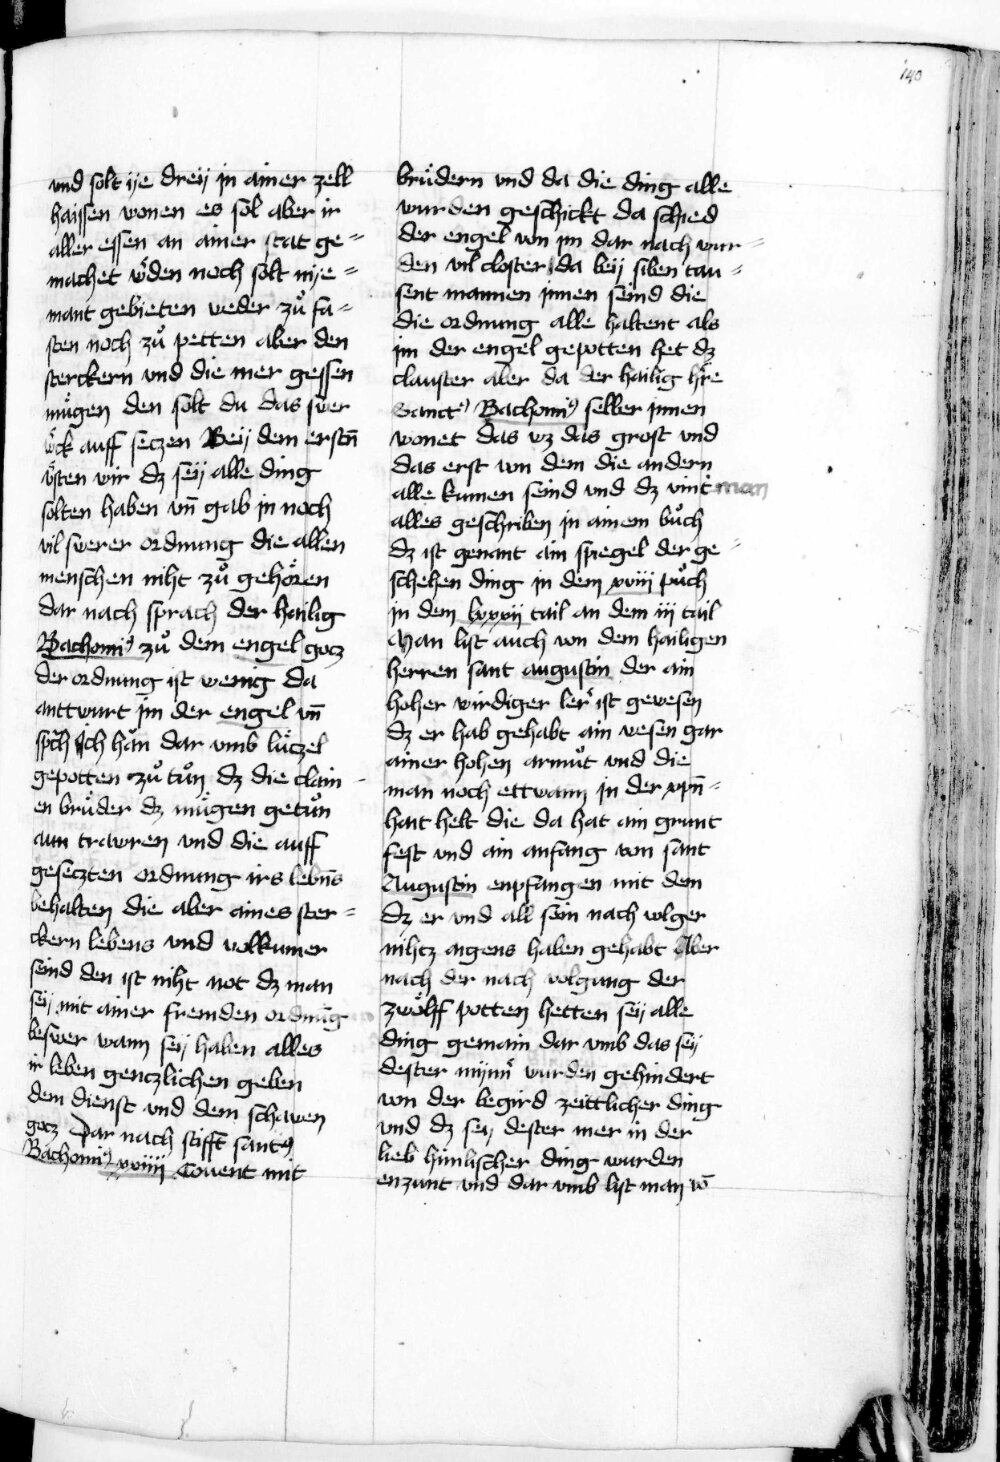 140
vnd solt ije dreij jn ainer zell
haissen wonen es sol aber ir
aller essen an ainer stat ge=
machet w̎den noch solt nije=
mant gebieten weder zů fa=
sten noch zů petten aber den
sterckern vnd die mer gessen
mügen den solt du das swer
w̎ck auff seczen Beij dem erstn̄
w̎sten wir dz seij alle ding
solten haben vn̄ gab jn noch
vil swerer ordnung die allen
menschen niht zů gehören
dar nach sprach der hailig
Bachomi⁹ zů dem engel gocz
der ordnung ist wenig da
anttwurt jm der engel vn̄
sp̄ch Ich hān dar vmb lüczel
gepotten zů tůn dz die clain
en brüder dz mügen getůn
aun trawren vnd die auff
geseczten ordnung irs lebn̄s
behalten die aber aines ster=
ckern lebens vnd volkumer
seind den ist niht not dz man
seij mit ainer fremden ordnūg
beswer wann seij haben alles
ir leben genczlichen geben
dem dienst vnd dem schawen
gocz Dar nach stifft sant⁹
Bachomi⁹ xviiij Covent mit
brüdern vnd da die ding alle
wurden geschickt da schied
der engel von jm dar nach wur=
den vil closter da beij siben tau=
sent mannen jnnen seind die
die ordnung alle haltent als
jm der engel gepotten het dz
clauster aber da der hailig hr̄e
Sanct⁹ Bachomi⁹ selber jnnen
wonet das wz das gröst vnd
das erst von dem die andern
alle kumen seind vnd dz vint man
alles geschriben jn ainem bůch
dz ist genant ain spiegel der ge=
schehen ding in dem xviij půch
in dem lxxxij tail an dem iij tail
Man list auch von dem hailigen
herren sant augustin der ain
hoher wirdiger ler̎ ist gewesen
dz er hab gehabt ain wesen gar
ainer hohen armůt vnd die
man noch ettwann in der xp̄n=
hait helt die da hat ain grunt
fest vnd ain anfang von sant
Augustin enpfangen mit dem
dz er vnd all sein nach volger
nihcz aigens haben gehabt Aber
nach der nach volgung der
zwölff potten hetten seij alle
ding gemain dar vmb das seij
dester mijnn̎ wurden gehindert
von der begird zeittlicher ding
vnd dz seij dester mer in der
lieb himlischer ding wurden
enzunt vnd dar vmb list man vō